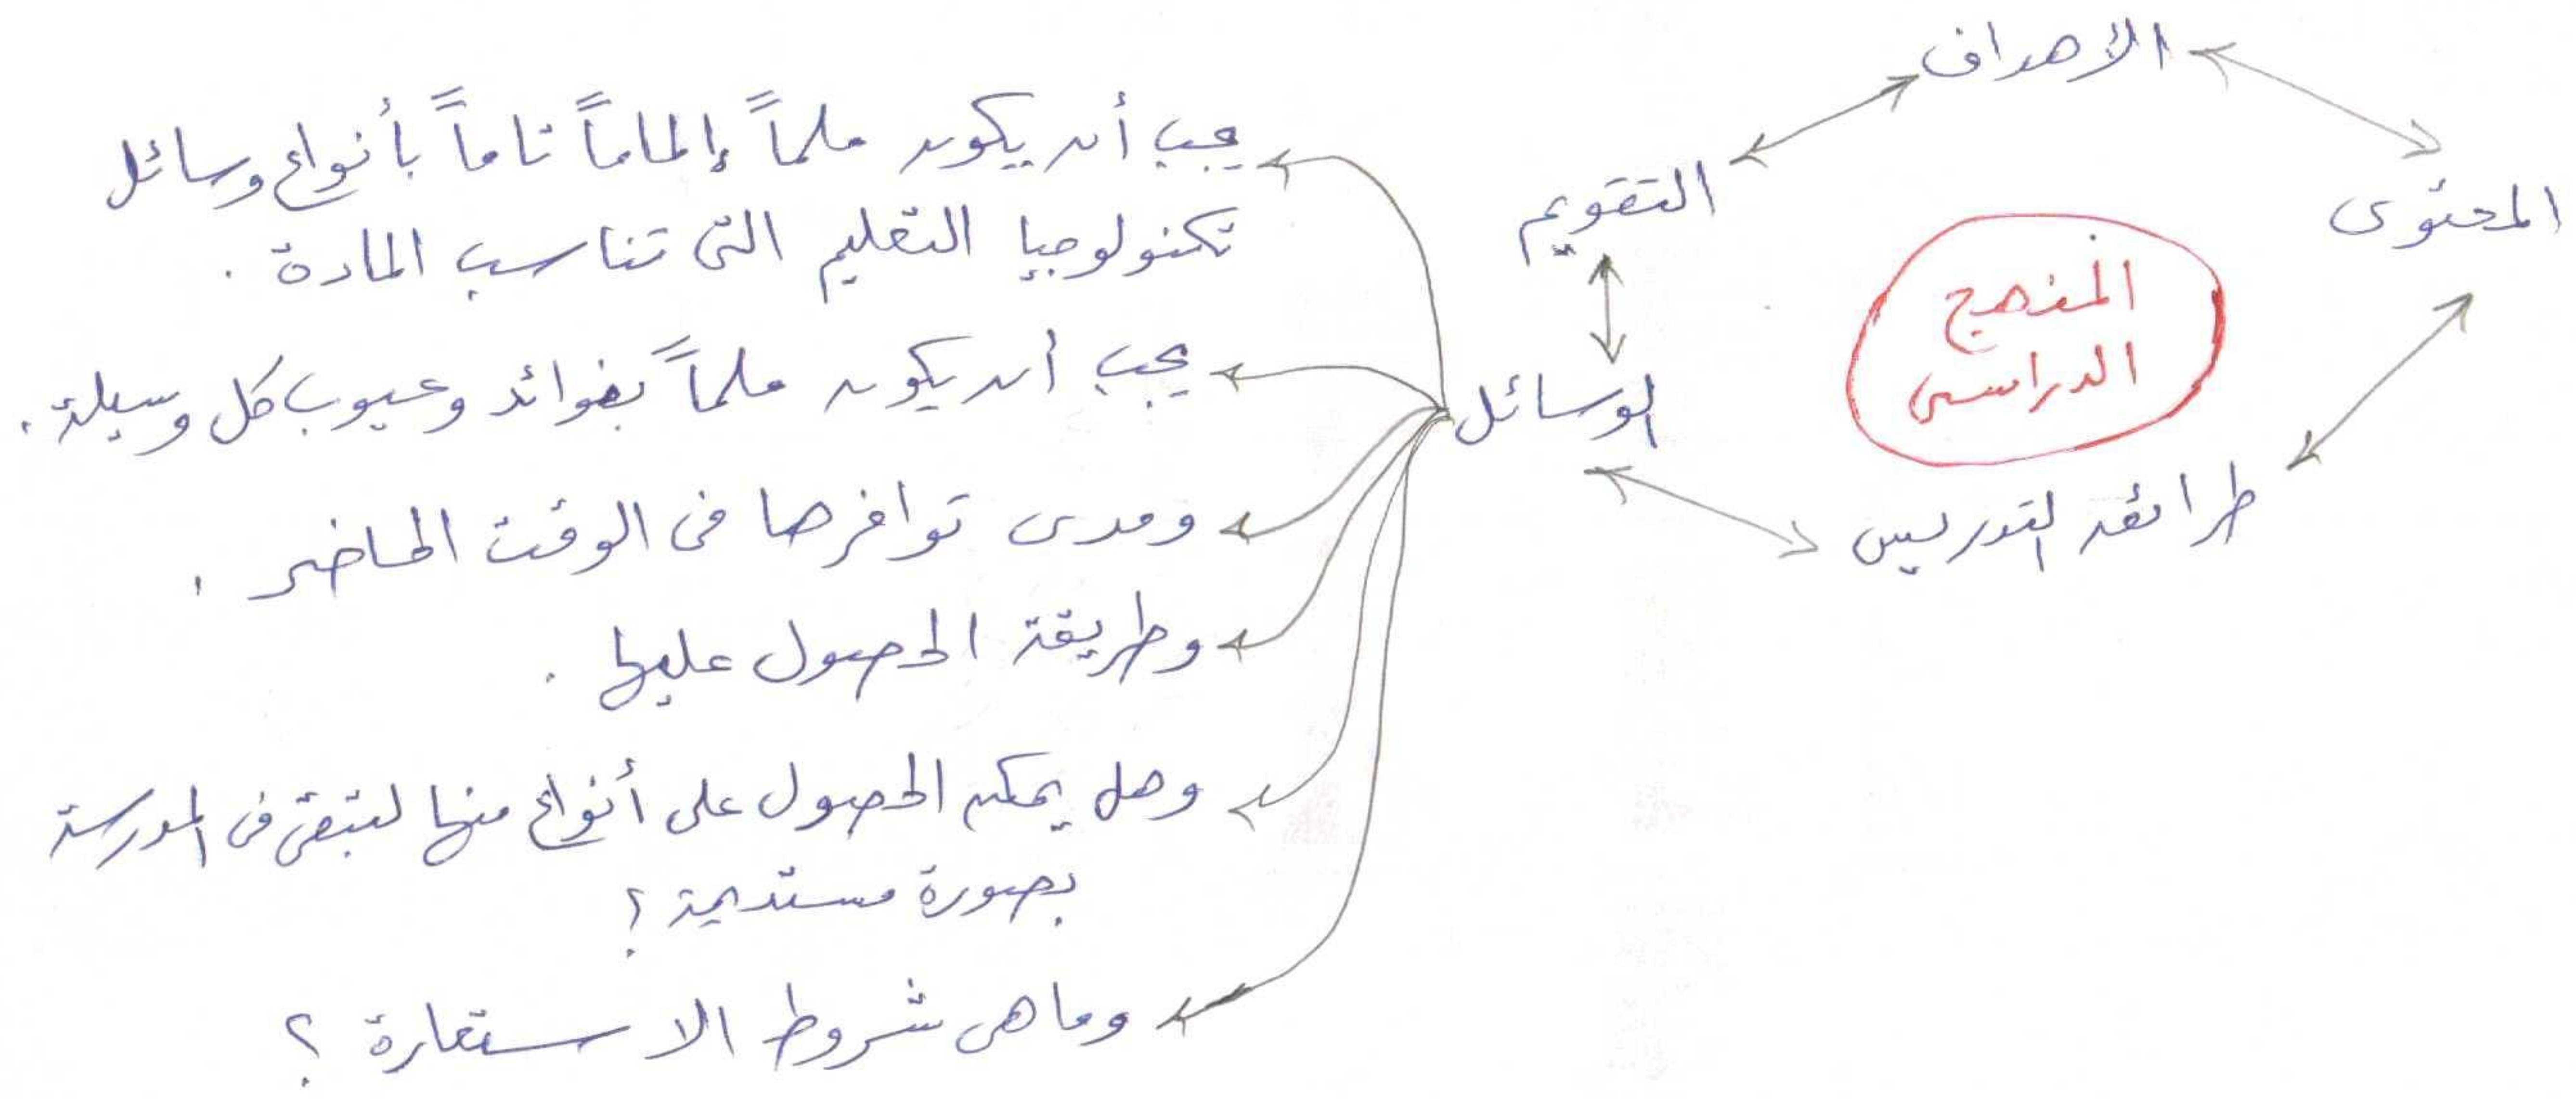 الأهداف
المحتوى
التقويم
المنهج
الدراسى
الوسائل
طرائق التدريس
يجب أن يكون ملماً إلماماً تاماً بأنواع وسائل
تكنولوجيا التعليم التى تناسب المادة .
يجب أن يكون ملماً بفوائد وعيوب كل وسيلة .
ومدى توافرها فى الوقت الحاضر .
وطريقة الحصول عليها .
وهل يمكن الحصول على أنواع منها لتبقى فى المدرسة
بصورة مستديمة ؟
وما هى شروط الاستعارة ؟